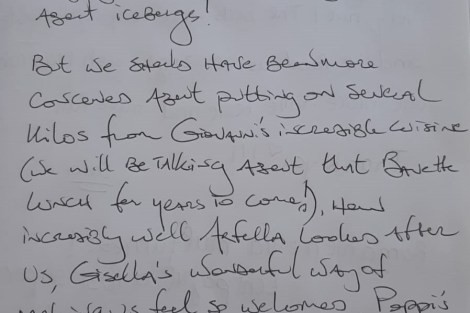 About icebergs!
But we should have been more
concerned about putting on several
kilos from Giovanni's incredible cuisine
(we will be talking about that Bavette
lunch for years to come!), How
incredibly well looked after
us, Gisella's wonderful way of
feel so welcomed Poppi's